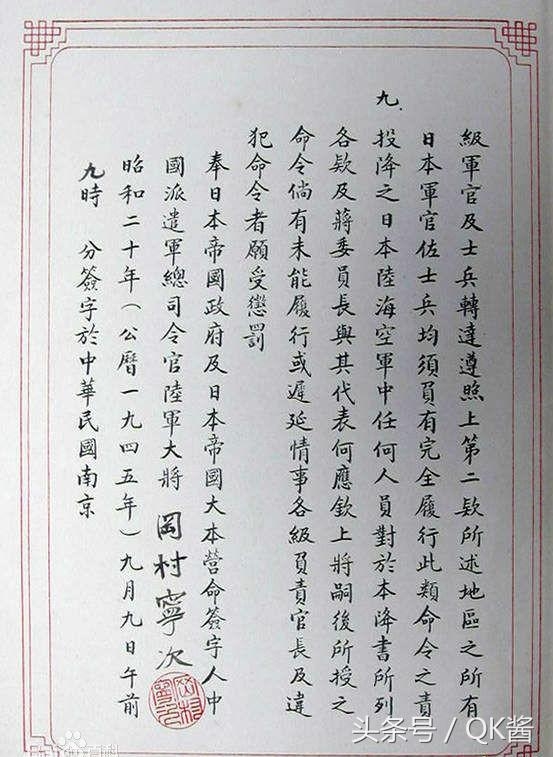 級軍官及士兵轉達遵照上第二欵所述地區之所有
日本軍官佐士兵均須負有完全履行此類命令之責
九、投降之日本陸海空軍中任何人員對於本降書所列
各欵及蔣委員長與其代表何應欽上將嗣後所授之
命令倘有未能履行或遲延情事各級負責官長及違
犯命令者願受懲罰
奉日本帝國政府及日本帝國大本營命簽字人中
國派遣軍總司令官陸軍大將 岡村寧次
昭和二十年(公曆一九四五年)九月九日午前
九時 分簽字於中華民國南京
岡村寧次
头条号 / QK酱
百科